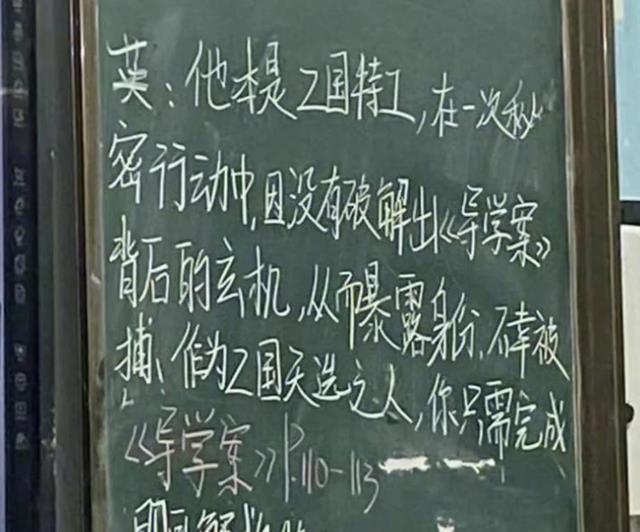 英：他本是Z国特工，在一次秘
密行动中，因没有破解出《导学案》
背后的玄机，从而暴露身份，不幸被
捕、作为Z国天选之人，你只需完成
《导学案》P.110-113
即可解